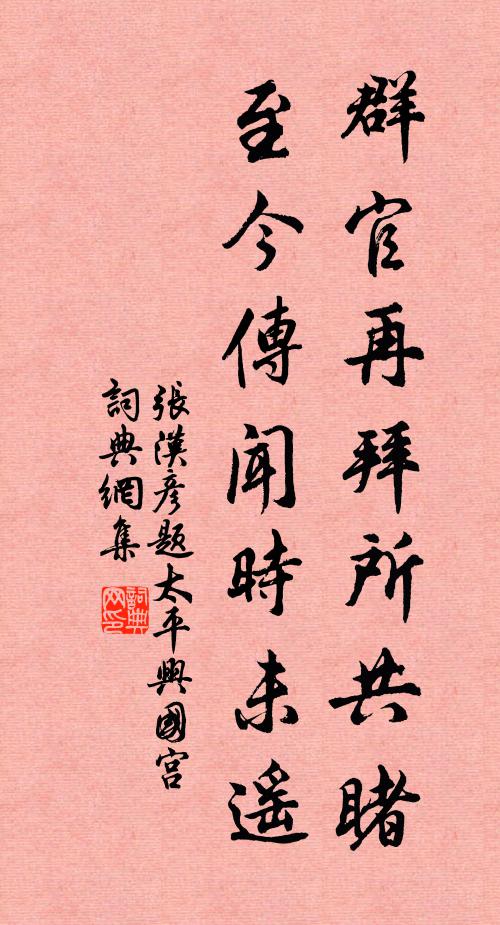 群官再拜所共睹
至今傳聞時未遥
張漢彥題太平興國宮
詞典網集
詞典
网印